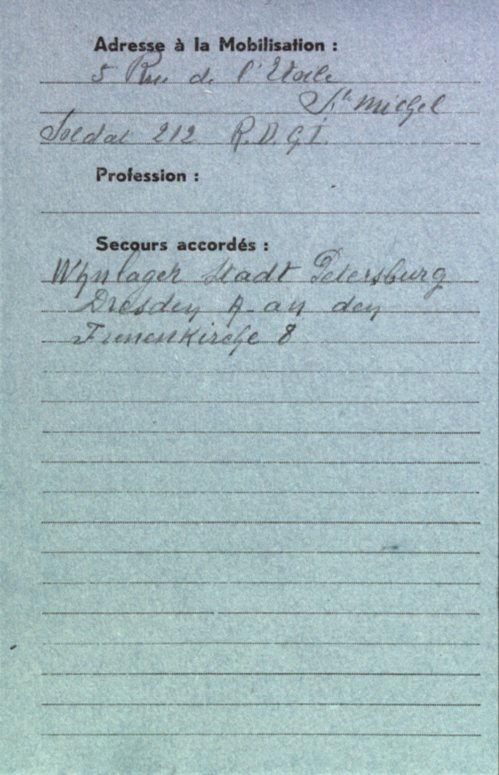 Adresse à la Mobilisation :
5 Rue de l'Etoile
St Michel
Soldat 212 R.D.G.I.
Profession :
Secours accordés :
Stadt Petersburg
Dresden A. an den
Frauenkirche 8